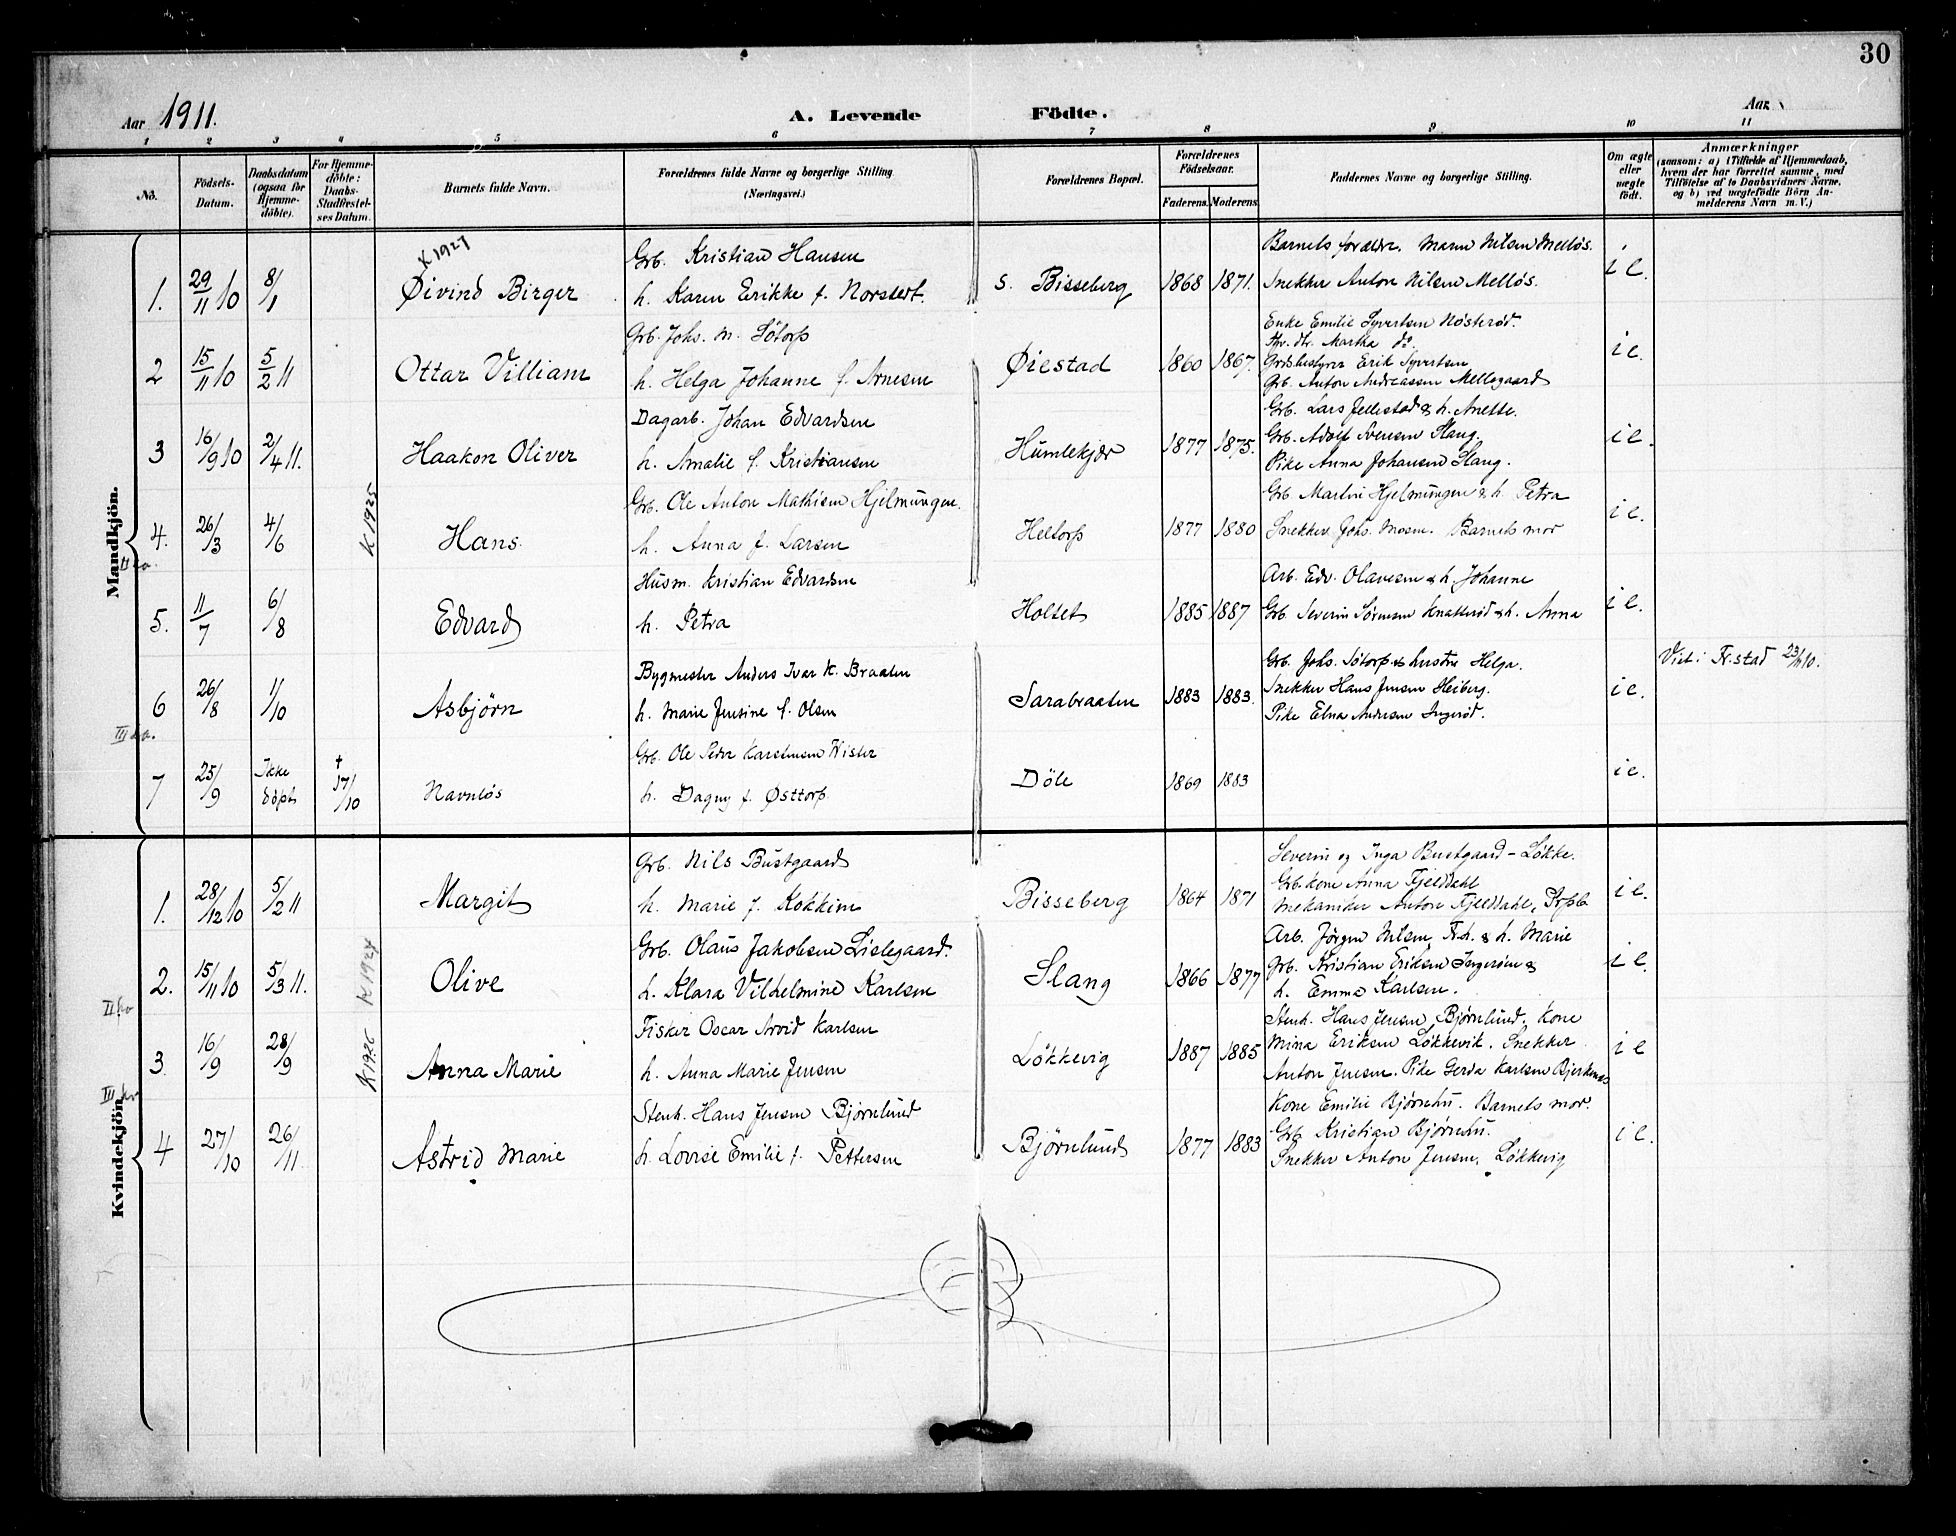 30
Aar 1911.
A. Levende Födte.
Aar
1 2 3 4 5 6 7 8 9 10 11
No.
Födsels-Datum.
Daabsdatum (ogsaa for Hjemme-döbte).
For Hjemme-döbte: Daabs-Stadfæstel-ses Datum.
Barnets fulde Navn.
Forældrenes fulde Navne og borgerlige Stilling (Næringsvei.)
Forældrenes Bopæl.
Forældrenes Födselsaar.
Faderens. Moderens.
Faddernes Navne og borgerlige Stilling.
Om ægte eller uægte födt.
Anmærkninger
(saasom: a) i Tilfælde af Hjemmedaab,
hvem der har forrettet samme, med
Tilföielse af to Daabsvidners Navne,
og b) ved uægtefödte Börn An-
melderens Navn m. V.)
Mandkjön.
K 1927
1. 29/11 10 8/1 Øivind Birger
Grb. Kristian Hansen
h. Karen Erikke f. Norstert.
S. Bisseberg 1868 1871.
Barnets forældre. Maren Nilsen Mellös.
Snekker Anton Nilsen Mellös.
i e.
2 15/11 10 5/2 11 Ottar Villiam
Grb. Johs. M. Sötorp
h. Helga Johanne f. Arnesen
Øiestad 1860 1867.
Enke Emilie Syvertsen Nösteröd.
Martha do.
Grdsbestyrer Erik Syvertsen
Grb. Anton Andreassen Mellegaard
i e.
3 16/9 10 2/4 11. Haakon Oliver
Dagarb. Johan Edvardsen
h. Amalie f. Kristiansen
Humlekjær 1877 1875.
Grb. Lars Jellestad & h. Anette.
Grb. Adolf Svensen Slang.
Pike Anna Johansen Slang.
i e.
4. 26/3 4/6 K 1925 Hans
Grb. Ole Anton Mathisen Hjelmungen.
h. Anna f. Larsen
Heltorp 1877 1880
Grb Martin Hjelmungen & h. Petra
Snekker Johs. Mosen. Barnets mor
i e.
5. 11/7 6/8 Edvard
Husm. Kristian Edvardsen
h. Petra
Holtet 1885 1887
Arb. Edv. Olavesen & h. Johanne
Grb Severin Sörensen Knatteröd & h. Anna
i e.
6 26/8 1/10 Asbjörn
Bygmester Anders Ivar K. Braaten
h. Marie Jensine f. Olsen
Sarabraaten 1883 1883.
Grb. Johs. Sötorp & hustru Helga.
Snekker Hans Jensen Heiberg.
Pike Elna Andersen Ingeröd.
i e.
Viet i Fr.stad 23/ 10.
7 25/9 Ikke döpt † 17/10 Navnlös
Grb. Ole Peder Karelinsen Wister
h. Dagny f. Østtorp
Döle 1869 1883
i e.
Kvindekjön
1. 28/12 10 5/2 11 Margit
Grb. Nils Bustgaard
h. Marie f. Kokkim
Bisseberg 1864 1871
Severin og Inga Bustgaard - Løkke.
Grb.kone Anna Fjelldahl
Mekaniker Anton Fjelldahl,
i e.
2. 15/11 10 5/3 11. K 1924 Olive
Grb. Olaus Jakobsen Lislegaard.
h. Klara Vilhelmine Karlsen
Slang 1866 1877
Arb. Jörgen Nilsen, Fr.h. & h. Marie
Grb. Kristian Eriksen Ingeröen &
h. Emma Karlsen.
i e.
3. 16/9 28/9 K 1926 Anna Marie
Fisker Oscar Arvid Karlsen
h. Anna Marie Jensen
Lökkevig 1887 1885
Stenh. Hans Jensen Björnlund, Kone
Mina Eriksen Lökkevik. Snekker
Anton Jensen. Pike Gerda Karlsen Bjerkenes
i e
4 27/10 26/11 Astrid Marie
Stenh. Hans Jensen Björnlund
h. Lovise Emilie f. Pettersen
Björnlund 1877 1883
Kone Emilie Björnlu. Barnets mor.
Grb. Kristian Björnlu.
Snekker Anton Jensen, Lökkevig
i e.